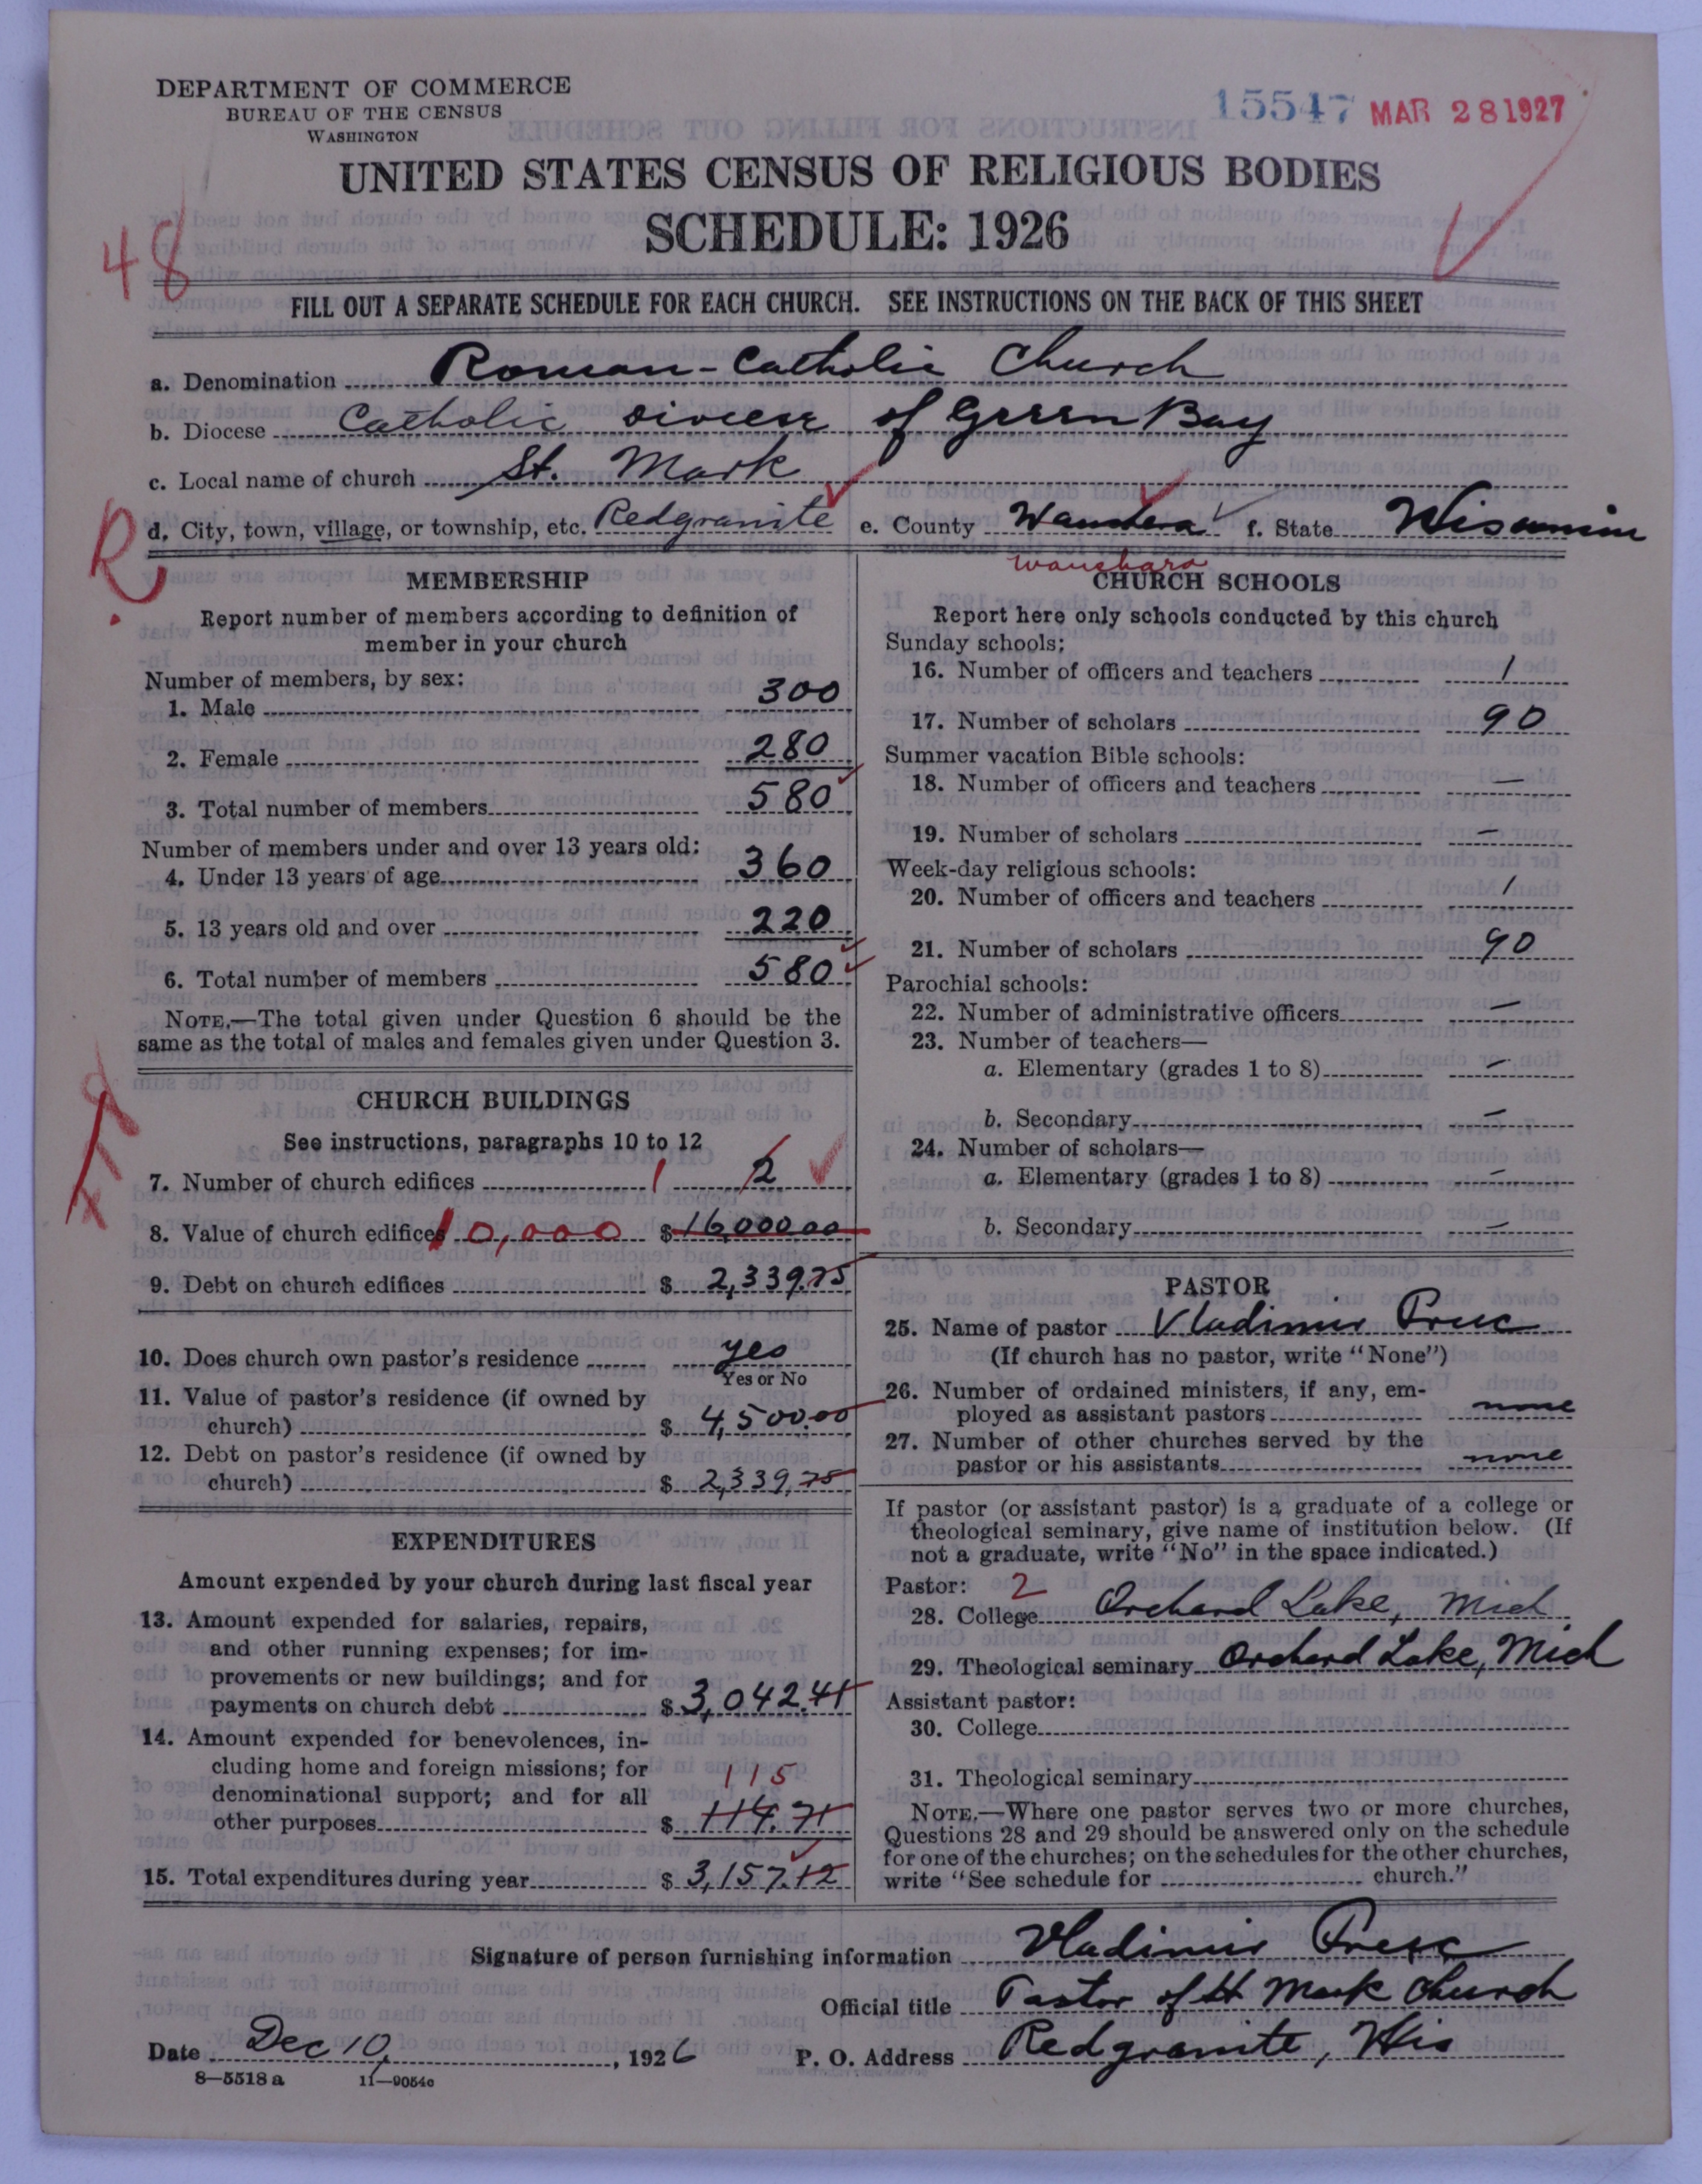 DEPARTMENT OF COMMERCE
BUREAU OF THE CENSUS
WASHINGTON
15547 MAR 28 1927
UNITED STATES CENSUS OF RELIGIOUS BODIES
SCHEDULE: 1926
48
FILL OUT A SEPARATE SCHEDULE FOR EACH CHURCH. SEE INSTRUCTIONS ON THE BACK OF THIS SHEET
a. Denomination Roman-Catholic Church
b. Diocese Catholic Diocese of Green Bay
c. Local name of church St. Mark
d. City, town, village, or township, etc. Redgranite e. County Waushera f. State Wisconsin
R
waushara
MEMBERSHIP
Report number of members according to definition of
member in your church
Number of members, by sex:
1. Male 300
2. Female 280
3. Total number of members 580
Number of members under and over 13 years old:
4. Under 13 years of age 360
5. 13 years old and over 220
6. Total number of members 580
NOTE.—The total given under Question 6 should be the
same as the total of males and females given under Question 3.
CHURCH BUILDINGS
See instructions, paragraphs 10 to 12
7. Number of church edifices 1 2
8. Value of church edifices 10,000 $16,000.00
9. Debt on church edifices $ 2,339.75
10. Does church own pastor's residence yes
Yes or No
11. Value of pastor's residence (if owned by
church) $ 4,500.00
12. Debt on pastor's residence (if owned by
church) $ 2,339.75
EXPENDITURES
Amount expended by your church during last fiscal year
13. Amount expended for salaries, repairs,
and other running expenses; for im-
provements or new buildings; and for
payments on church debt $ 3,042.41
14. Amount expended for benevolences, in-
cluding home and foreign missions; for
denominational support; and for all
115
other purposes $ 114.71
15. Total expenditures during year $ 3,157.12
CHURCH SCHOOLS
Report here only schools conducted by this church
Sunday schools:
16. Number of officers and teachers 1
17. Number of scholars 90
Summer vacation Bible schools:
18. Number of officers and teachers —
19. Number of scholars —
Week-day religious schools:
20. Number of officers and teachers 1
21. Number of scholars 90
Parochial schools:
22. Number of administrative officers —
23. Number of teachers—
a. Elementary (grades 1 to 8) —
b. Secondary —
24. Number of scholars—
a. Elementary (grades 1 to 8) —
b. Secondary —
PASTOR
25. Name of pastor Vladimir
(If church has no pastor, write "None")
26. Number of ordained ministers, if any, em-
ployed as assistant pastors none
27. Number of other churches served by the
pastor or his assistants none
If pastor (or assistant pastor) is a graduate of a college or
theological seminary, give name of institution below. (If
not a graduate, write "No" in the space indicated.)
Pastor: 2
28. College Orchard Lake, Mich
29. Theological seminary Orchard Lake, Mich
Assistant pastor:
30. College
31. Theological seminary
NOTE.—Where one pastor serves two or more churches,
Questions 28 and 29 should be answered only on the schedule
for one of the churches; on the schedules for the other churches,
write "See schedule for church."
Signature of person furnishing information Vladimir
Official title Pastor of St Mark Church
Date Dec 10, 1926 P. O. Address Redgranite, Wis
8—5518 a 11—9054c